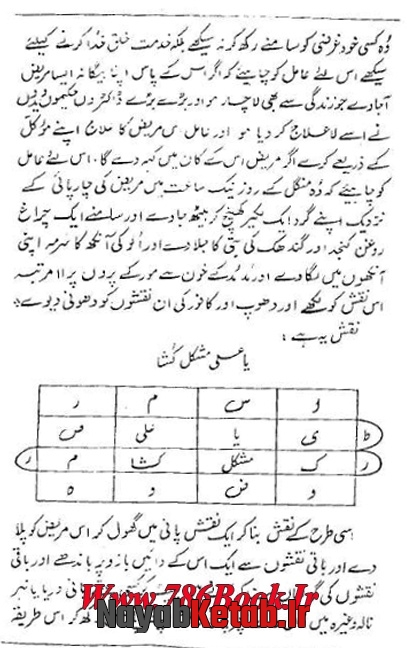 وہ کسی خود غرضی کو سامنے رکھ کر نہ سیکھے بلکہ خدمت خلق خدا کرنے کیلئے
سیکھے اس لئے عامل کو چاہیئے کہ اگر اس کے پاس اپنا بیگانہ ایسا مریض
آجاوے جو زندگی سے بھی لاچار ہو اور بڑے بڑے ڈاکٹروں حکیموں ویدوں
نے اسے لاعلاج کر دیا ہو اور عامل اس مریض کا علاج اپنے مؤکل
کے ذریعے کرے اگر مریض اس کے کان میں کہہ دے گا، اس لئے عامل
کو چاہیئے کہ وہ منگل کے روز نیک ساعت میں مریض کی چارپائی کے
نزدیک اپنے گرد ایک لکیر کھینچ کر بیٹھ جاوے اور سامنے ایک چراغ
روغن کنجد اور گندھک کی بتی کا جلا دے اور اُلو کی آنکھ کا سرمہ اپنی
آنکھوں میں لگاوے اور ہُدہُد کے خون سے مور کے پروں پر ۱۱ مرتبہ
اس نقش کو لکھے اور دھوپ اور کافور کی ان نقشوں کو دھونی دیوے۔
نقش یہ ہے :
یا علی مشکل کُشا
و س م ر
ط ی یا علی ص
ر ک مشکل کشا م ر
و ض و ہ
اسی طرح کے نقش بنا کر ایک نقش پانی میں گھول کر اس مریض کو پلا
دے اور باقی نقشوں سے ایک اس کے دائیں بازو پر باندھے اور باقی
نقشوں کی دریا یا نہر
نالہ وغیرہ میں کر اس طریقہ
Www.786Book.Ir
NayabKetab.Ir